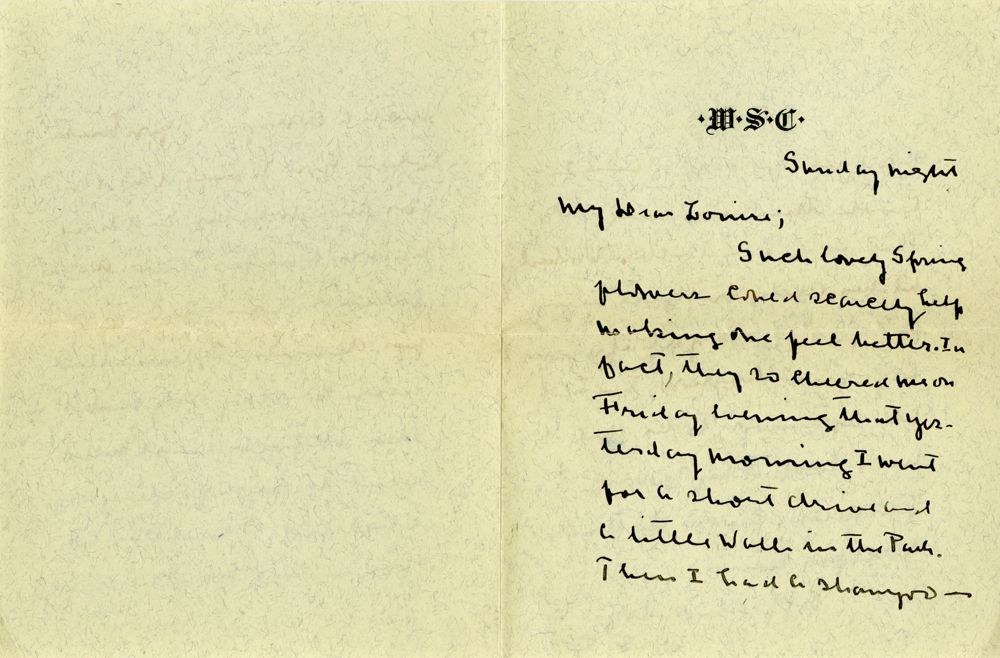 ·W·S·C·
Sunday night
My Dear Louise;
Such lovely Spring
flowers could scarcely help
making one feel better. In
fact, they so cheered me on
Friday evening that yes-
terday morning I went
for a short drive and
a little walk in the Park.
Then I had a shampoo —